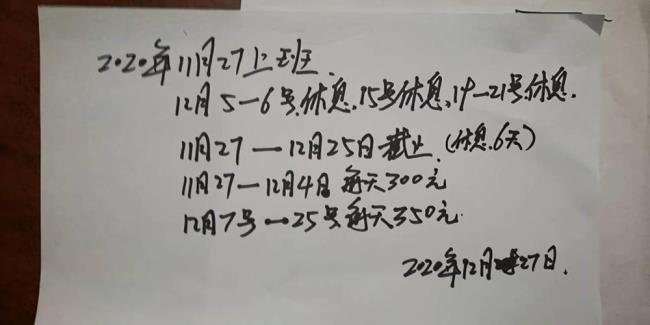 2020年11月27上班.
12月5—6号休息.15号休息,19—21号休息.
11月27—12月25日截止.(休息.6天)
11月27—12月4日每天300元
12月7号—25号每天350元.
2020年12月27日.